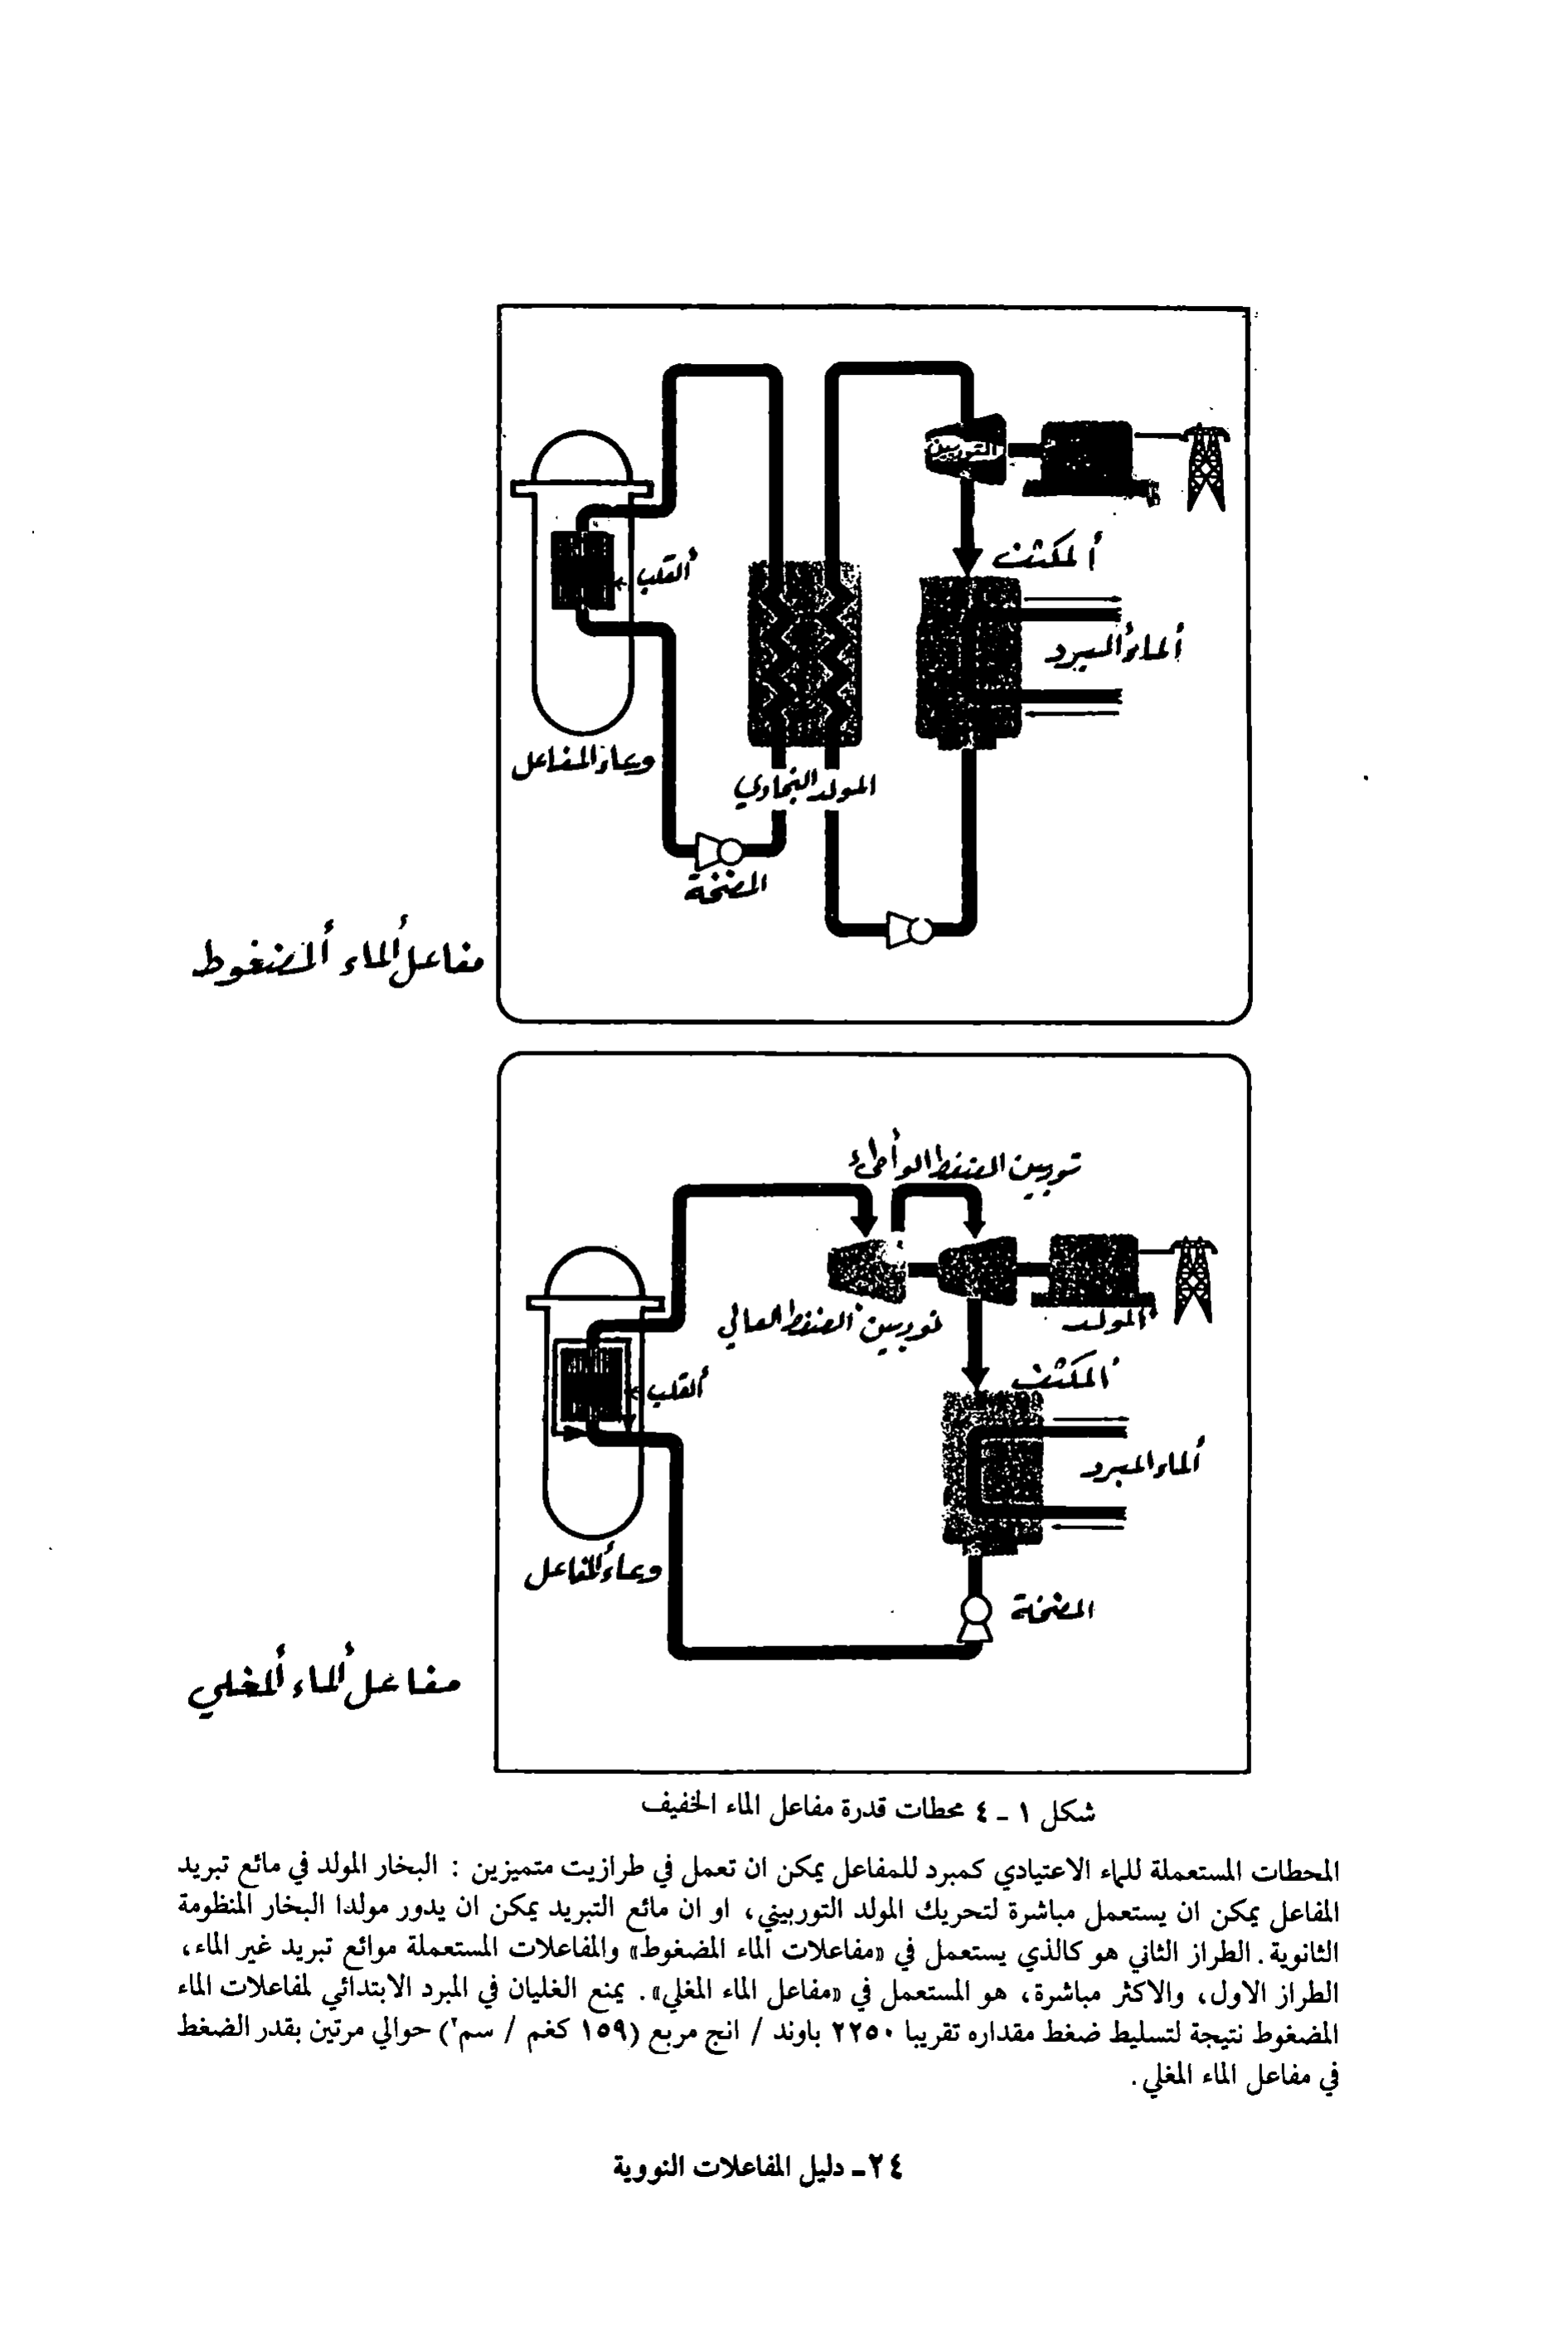 التوربين
ألمكثف
ألقلب
ألماء ألمبرد
وعاء المفاعل
المولد البخاري
المضخة
مفاعل ألماء ألمضغوط
توربين الضغط الواطىء
توربين الضغط العالي
المولد
المكثف
ألقلب
ألماء المبرد
وعاء ألمفاعل
المضخة
مفاعل ألماء ألمغلي
شكل ١ - ٤ محطات قدرة مفاعل الماء الخفيف
المحطات المستعملة للماء الاعتيادي كمبرد للمفاعل يمكن ان تعمل في طرازيت متميزين : البخار المولد في مائع تبريد
المفاعل يمكن ان يستعمل مباشرة لتحريك المولد التوربيني، او ان مائع التبريد يمكن ان يدور مولدا البخار المنظومة
الثانوية. الطراز الثاني هو كالذي يستعمل في «مفاعلات الماء المضغوط» والمفاعلات المستعملة موائع تبريد غير الماء،
الطراز الاول، والاكثر مباشرة، هو المستعمل في «مفاعل الماء المغلي». يمنع الغليان في المبرد الابتدائي لمفاعلات الماء
المضغوط نتيجة لتسليط ضغط مقداره تقريبا ٢٢٥٠ باوند / انج مربع (١٥٩ كغم / سم٢) حوالي مرتين بقدر الضغط
في مفاعل الماء المغلي.
٢٤- دليل المفاعلات النووية